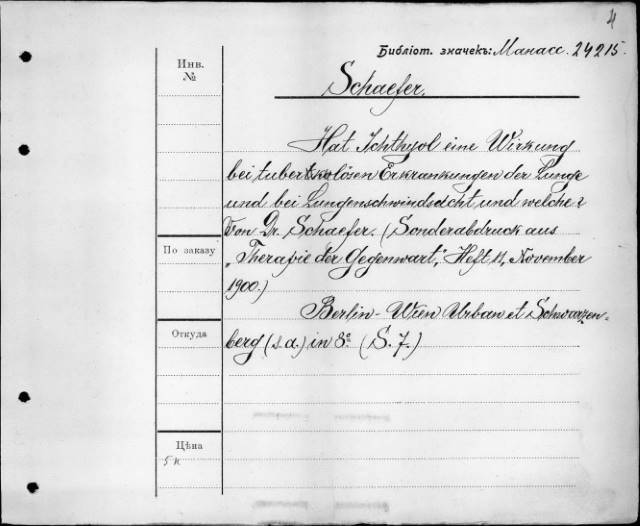 4
Библіот. значекъ: Манасс. 24215.
Инв.
№
Schaefer.
Hat Ichthyol eine Wirkung
bei tuberkulösen Erkrankungen der Lunge
und bei Lungenschwindsucht und welche?
Von Dr. Schaefer. (Sonderabdruck aus
По заказу
„Therapie der Gegenwart", Heft 11, November
1900.)
Berlin-Wien Urban et Schwarzen-
Откуда
berg (s. a.) in 8° (S. 7.)
Цѣна
5 к